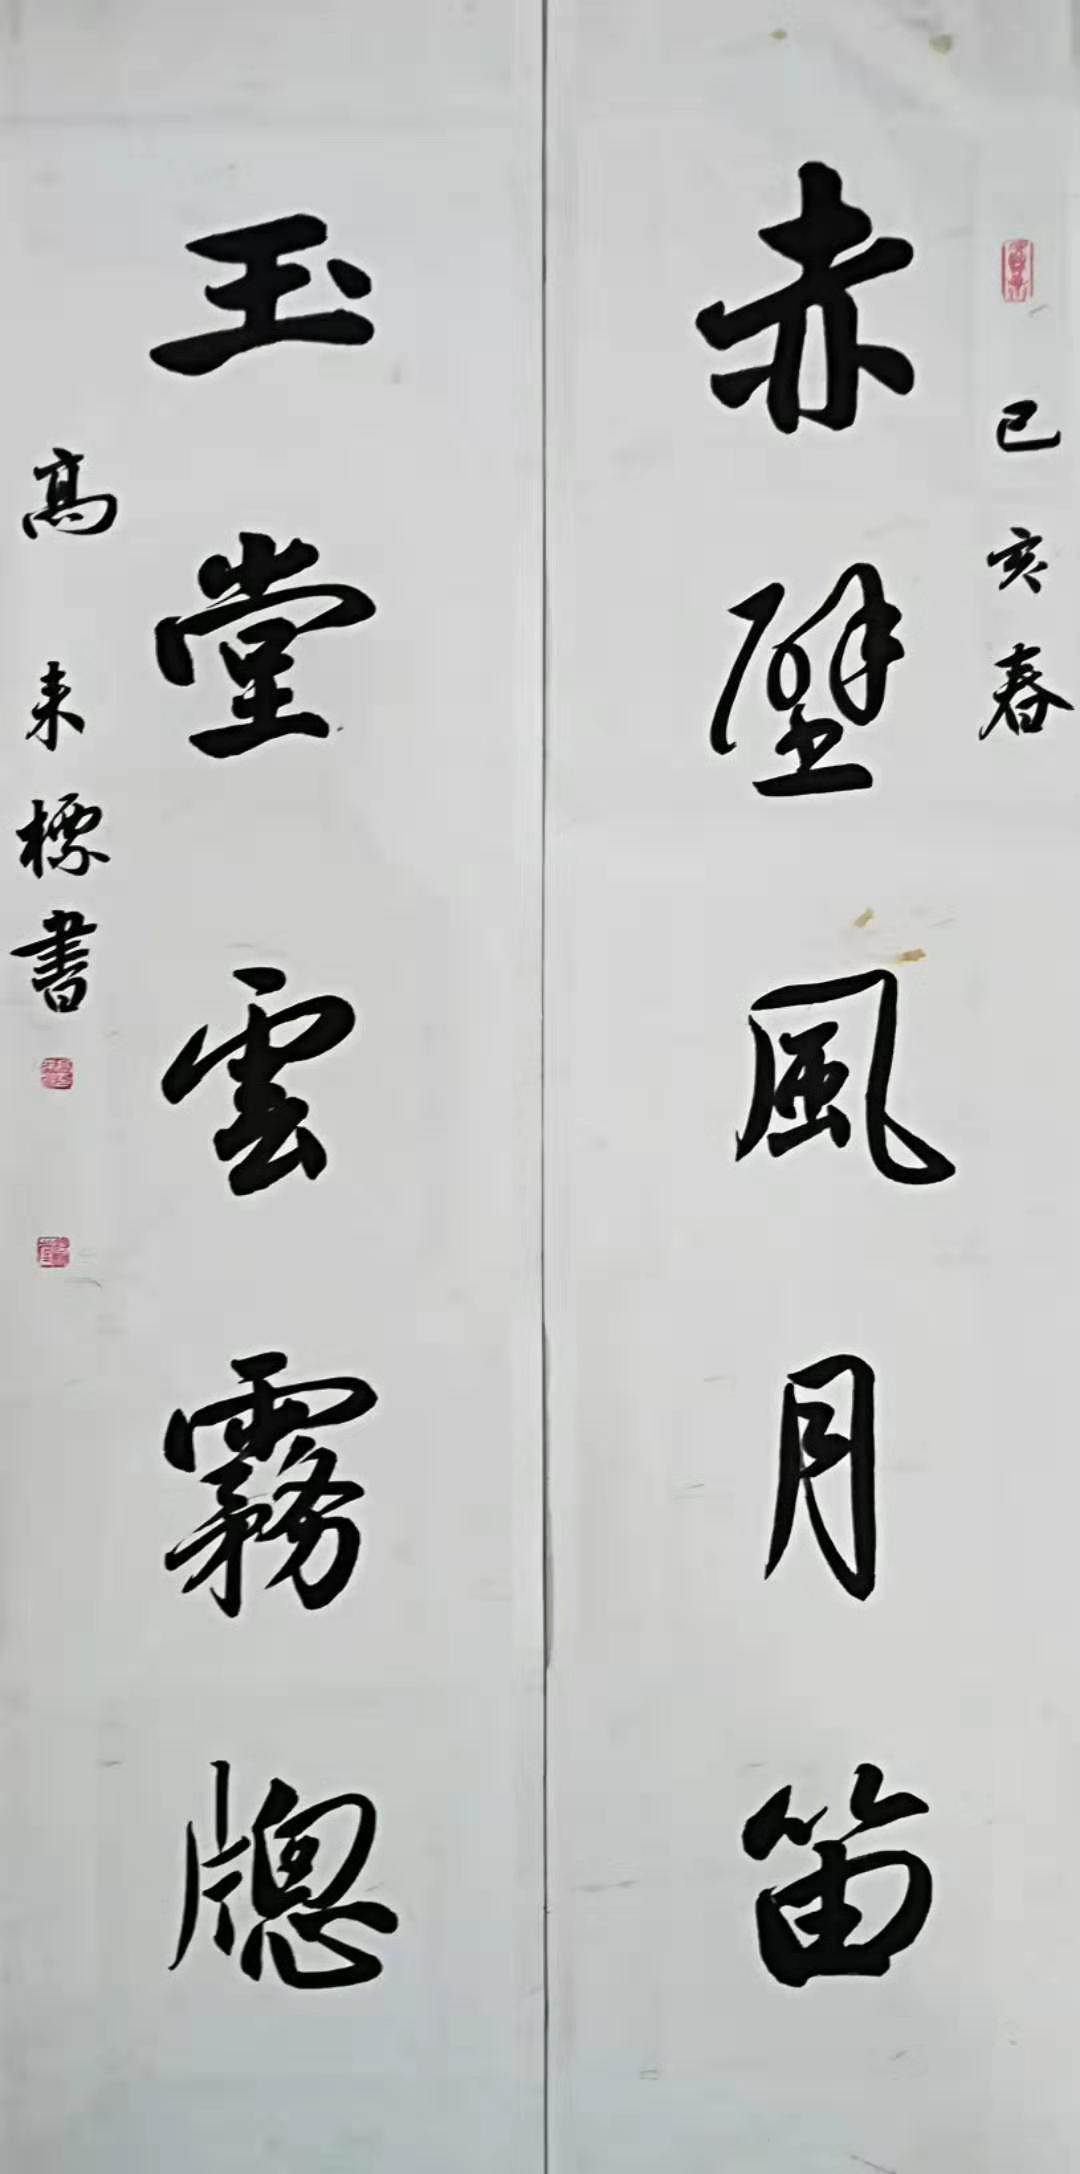 己亥春
赤壁風月笛
玉堂雲霧牕
高来標書